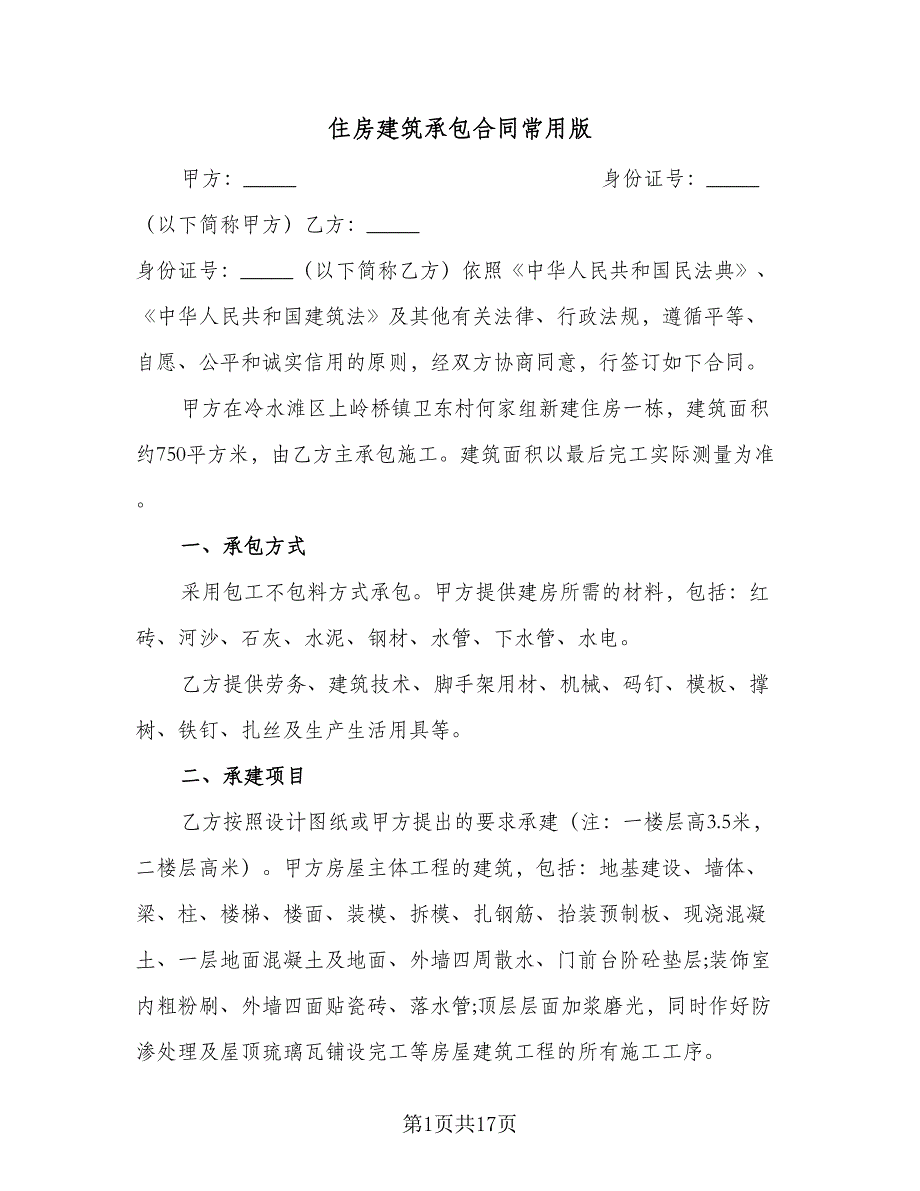 住房建筑承包合同常用版
甲方：_____ 身份证号：_____
（以下简称甲方）乙方：_____
身份证号：_____（以下简称乙方）依照《中华人民共和国民法典》、
《中华人民共和国建筑法》及其他有关法律、行政法规，遵循平等、
自愿、公平和诚实信用的原则，经双方协商同意，行签订如下合同。
甲方在冷水滩区上岭桥镇卫东村何家组新建住房一栋，建筑面积
约750平方米，由乙方主承包施工。建筑面积以最后完工实际测量为准
。
一、承包方式
采用包工不包料方式承包。甲方提供建房所需的材料，包括：红
砖、河沙、石灰、水泥、钢材、水管、下水管、水电。
乙方提供劳务、建筑技术、脚手架用材、机械、码钉、模板、撑
树、铁钉、扎丝及生产生活用具等。
二、承建项目
乙方按照设计图纸或甲方提出的要求承建（注：一楼层高3.5米，
二楼层高米）。甲方房屋主体工程的建筑，包括：地基建设、墙体、
梁、柱、楼梯、楼面、装模、拆模、扎钢筋、抬装预制板、现浇混凝
土、一层地面混凝土及地面、外墙四周散水、门前台阶砼垫层;装饰室
内粗粉刷、外墙四面贴瓷砖、落水管;顶层层面加浆磨光，同时作好防
渗处理及屋顶琉璃瓦铺设完工等房屋建筑工程的所有施工工序。
第1页共17页